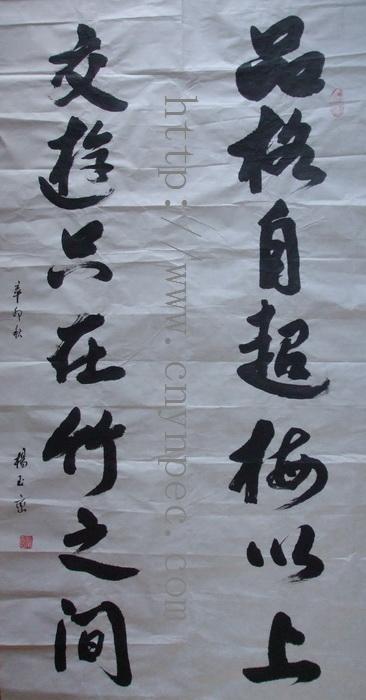 品格自超梅以上
交遊只在竹之间
辛卯秋
楊玉
http://www.cnynpec.com